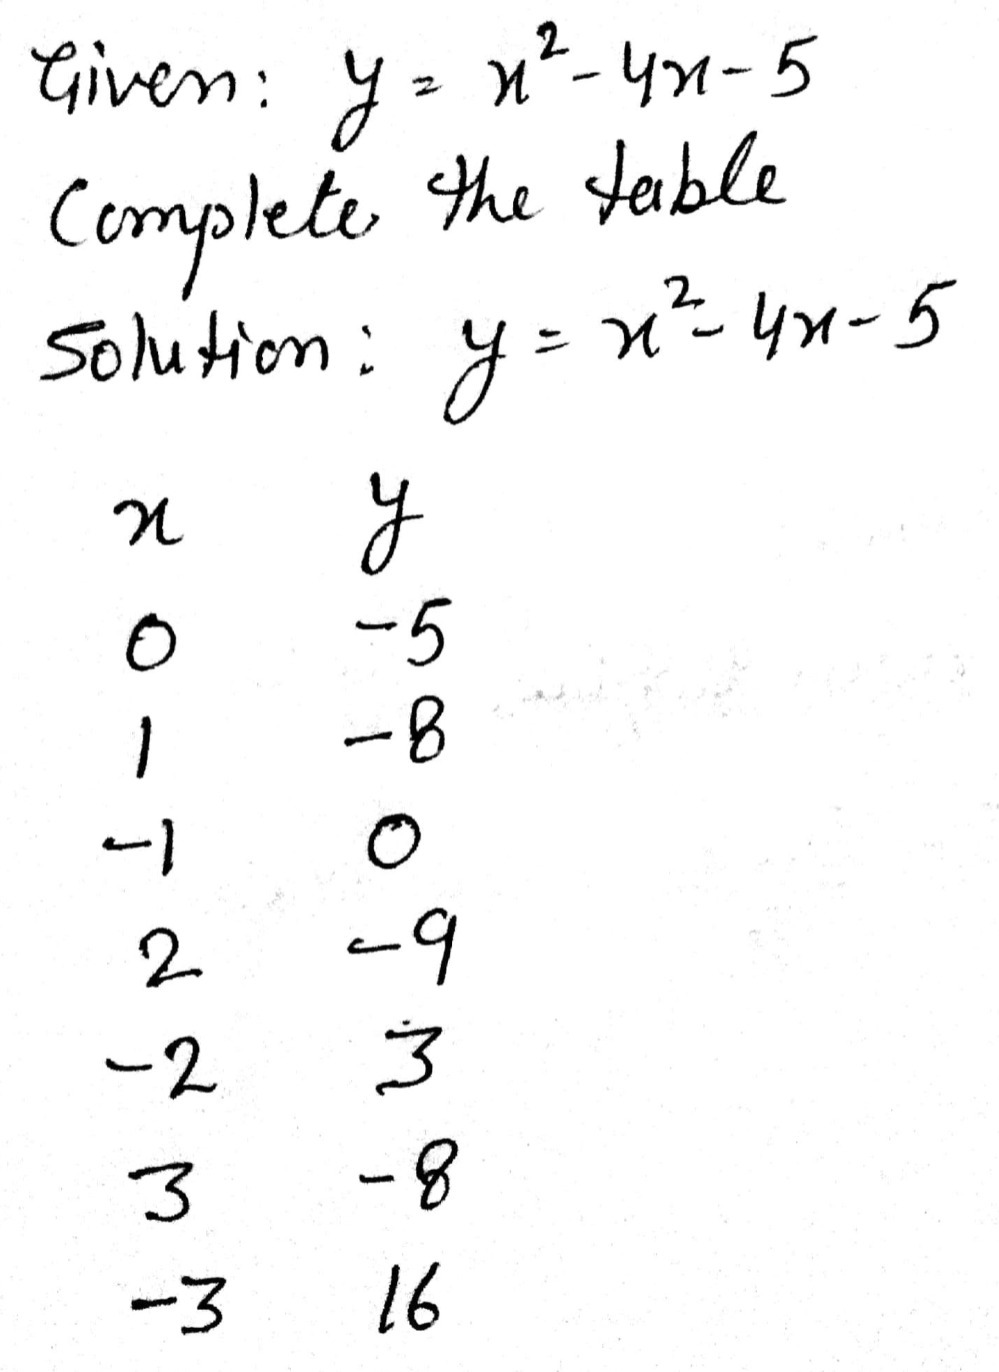 Given: y = x² - 4x - 5
Complete the table
Solution: y = x² - 4x - 5
x y
0 -5
1 -8
-1 0
2 -9
-2 3
3 -8
-3 16